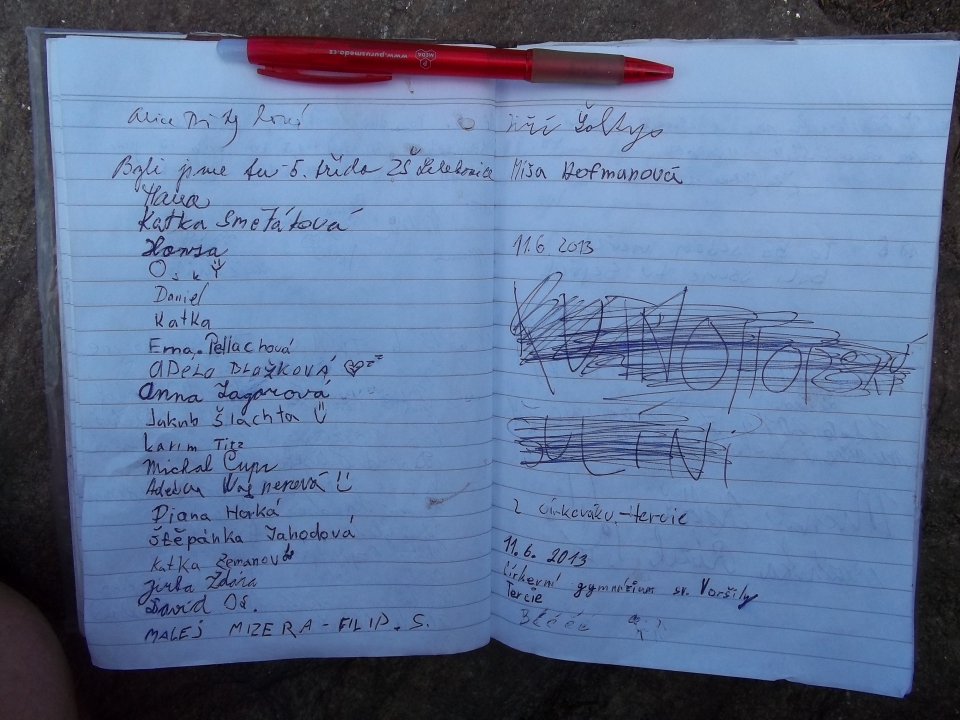 www.purusmeda.cz
P
MEDA
Alice
Byli jsme tu 5. třída ZŠ
Hana
Katka Smetátová
Honza
Daniel
Katka
Ema Pellachová
ADéLa DLažKová
Anna Zagarová
Jakub Šlachta
Karim Titz
Michal Čupr
Diana Horká
Štěpánka Jahodová
Katka Zemanová
Jirka Ždára
David Oš.
MALEJ MIZERA - FILIP. S.
Jiří Šoltys
Míša Hofmanová
11.6. 2013
z církováku - tercie
11. 6. 2013
Církevní gymnázium sv. Voršily
Tercie